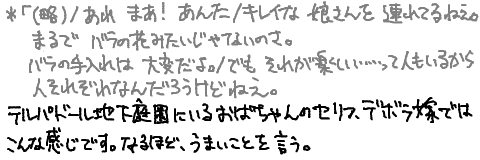 *「(略)/あれ まあ! あんた/キレイな 娘さんを 連れてるねえ。
まるで バラの花みたいじゃないのさ。
バラの手入れは 大変だよ。/でも それが楽しい……って人もいるから
人それぞれなんだろうけどねえ。
テルパドール地下庭園にいるおばちゃんのセリフ、デボラ嫁では
こんな感じです。なるほど、うまいことを言う。